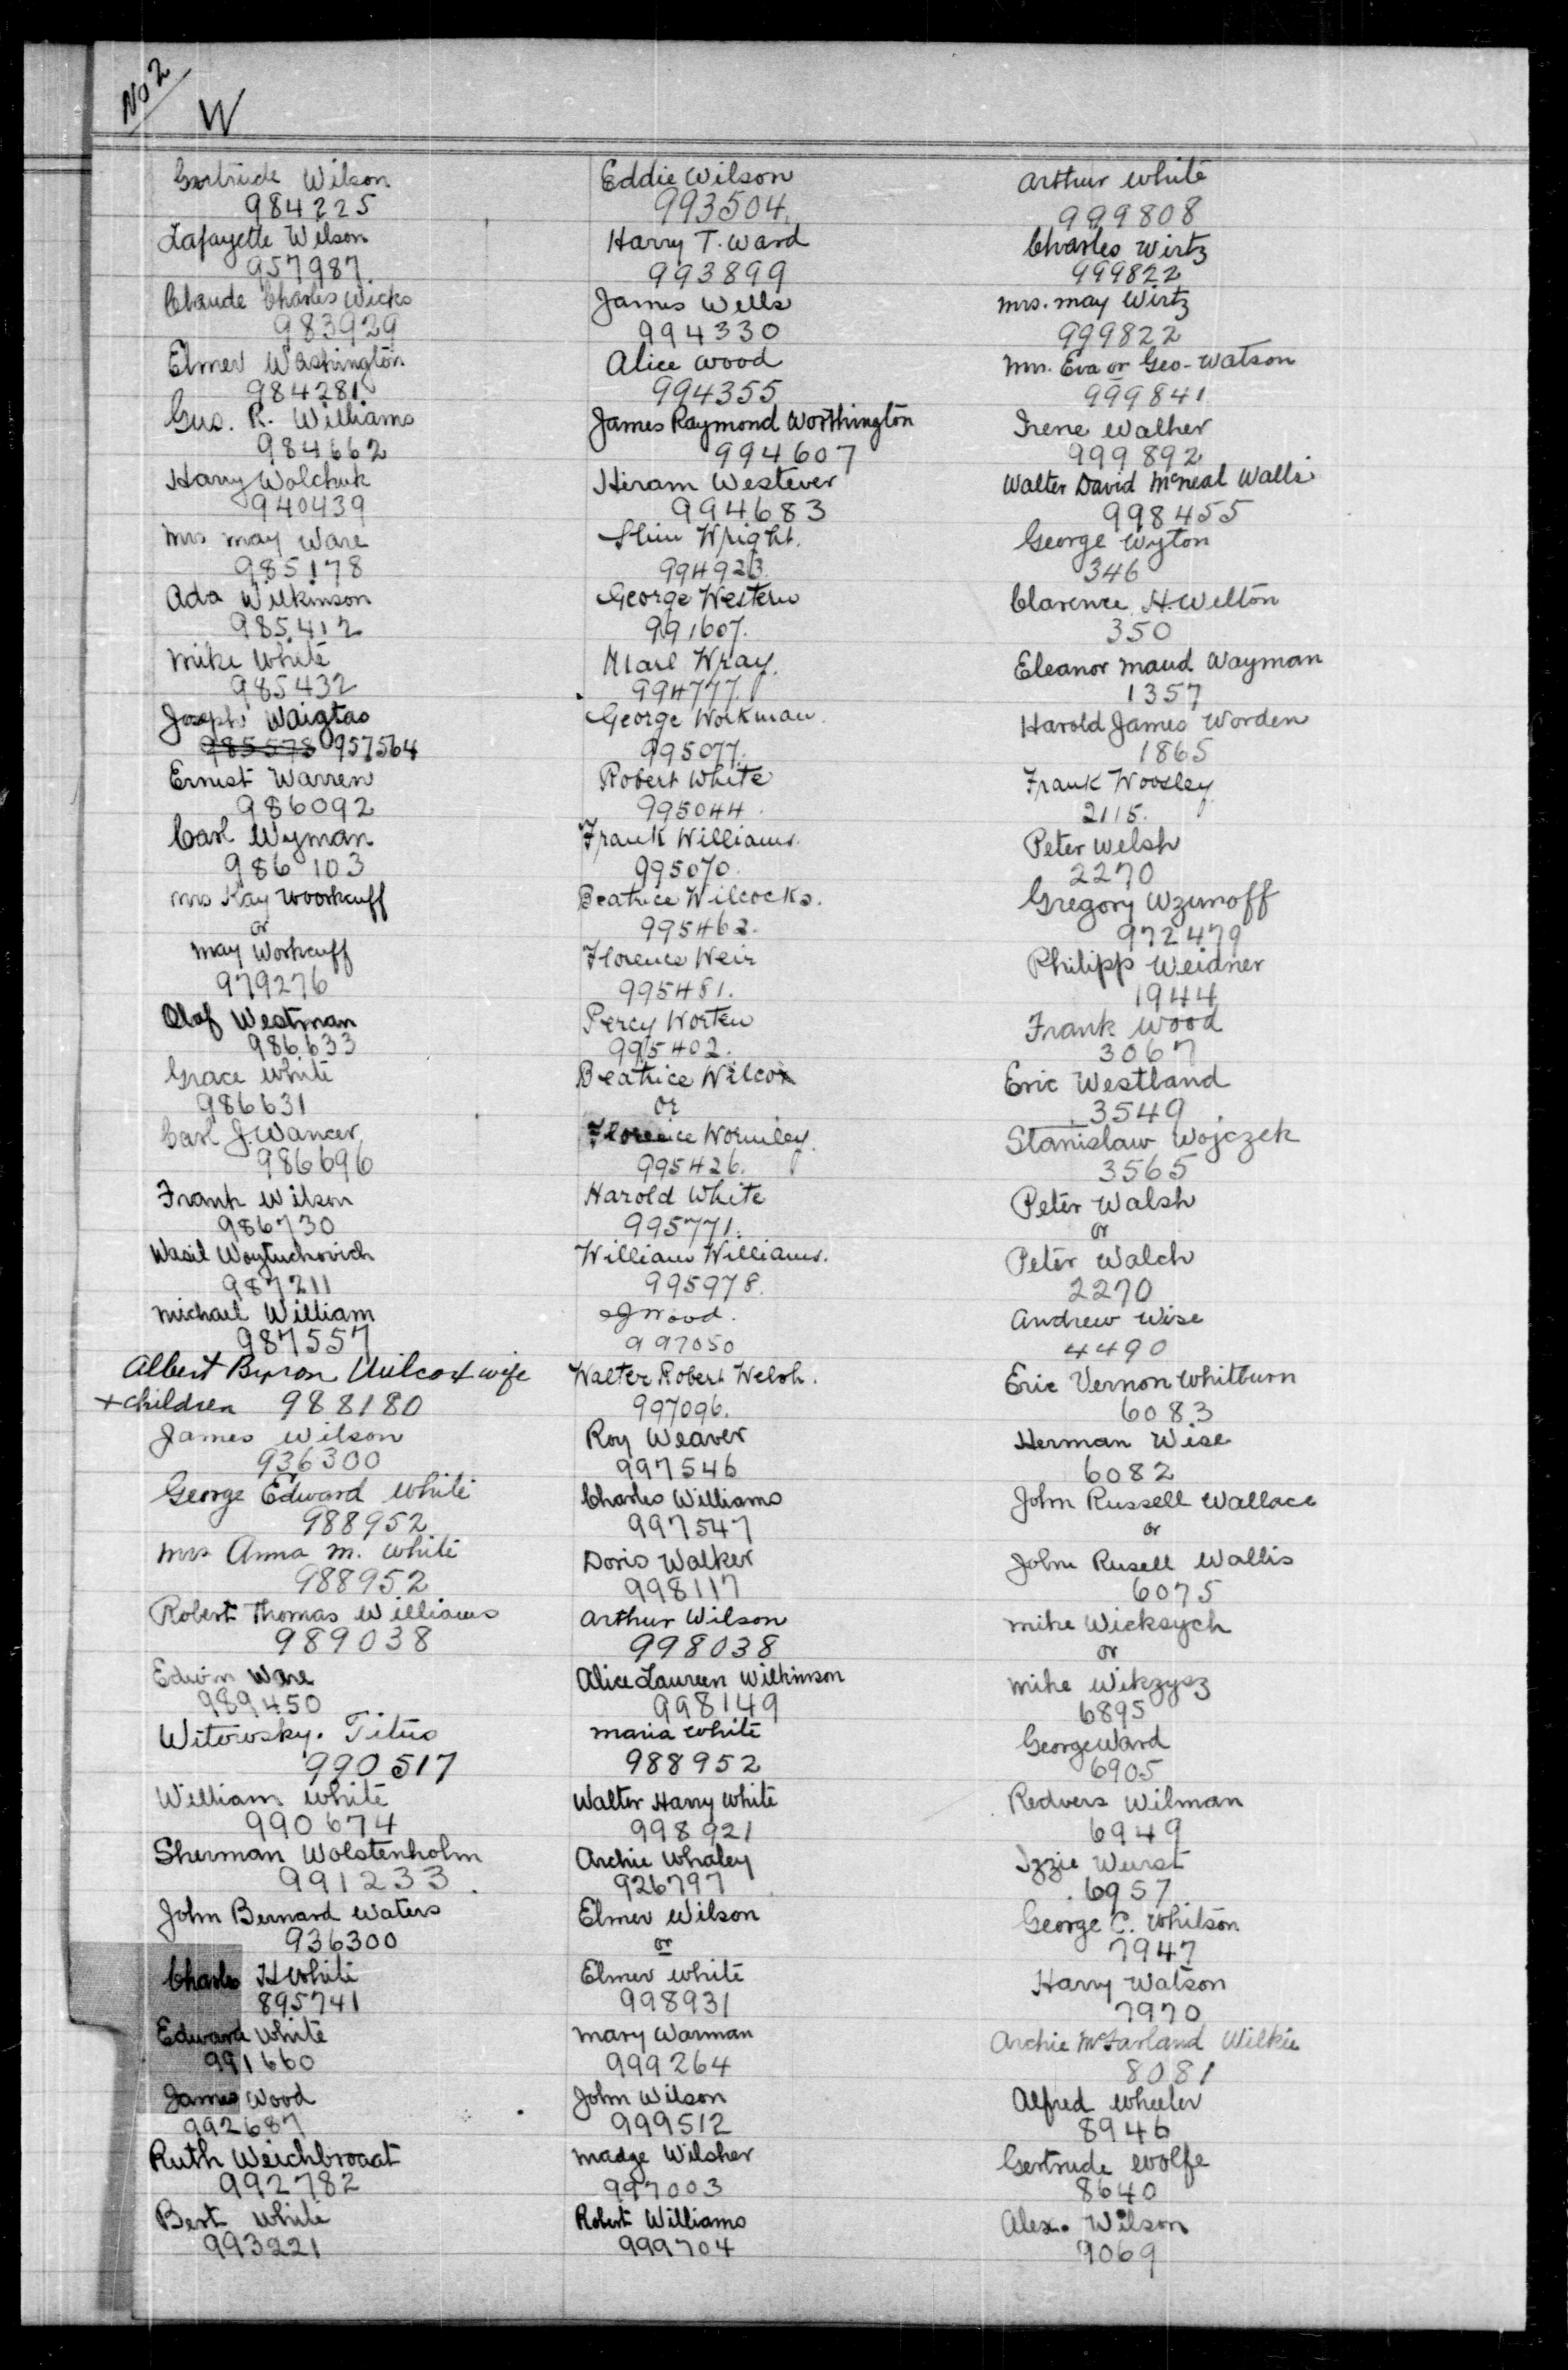 No 2
W
Gertrude Wilson
984225
Lafayette Wilson
957987
Claude Charles Wicks
983929
Elmer Washington
984281
Gus. R. Williams
984662
Harry Wolchuk
940439
Mrs May Ware
985178
Ada Wilkinson
985412
Mike White
985432
Joseph Waigtas
985578 957564
Ernest Warren
986092
Carl Wyman
986103
Mrs Kay Woorkcuff
or
May Workcuff
979276
Olaf Westman
986633
Grace White
986631
Carl J. Wancer
986696
Frank Wilson
986730
Wasil Woytuchovich
987211
Michael William
987557
Albert Byron Wilcox wife
+ children 988180
James Wilson
936300
George Edward White
988952
Mrs Anna M. White
988952
Robert Thomas Williams
989038
Edwin Ware
989450
Witowsky. Titus
990517
William White
990674
Sherman Wolstenholm
991233
John Bernard Waters
936300
Charles H White
895741
Edward White
991660
James Wood
992687
Ruth Weichbroaat
992782
Bert White
993221
Eddie Wilson
993504
Harry T. Ward
993899
James Wells
994330
Alice Wood
994355
James Raymond Worthington
994607
Hiram Westever
994683
Slim Wright.
994923
George Western
991607.
Wray.
994777.
George Workman.
995077.
Robert White
995044.
Frank Williams.
995070.
Beatrice Wilcocks.
995462.
Florence Weir
995481.
Percy Worten
995402.
Beatrice Wilcox
or
Florence Wormley.
995426.
Harold White
995771.
William Williams.
995978.
J Wood.
997050
Walter Robert Welsh.
997096.
Roy Weaver
997546
Charles Williams
997547
Doris Walker
998117
Arthur Wilson
998038
Alice Laureen Wilkinson
998149
Maria White
988952
Walter Harry White
998921
Archie Whaley
926797
Elmer Wilson
or
Elmer White
998931
Mary Warman
999264
John Wilson
999512
Madge Wilsher
997003
Robert Williams
999704
Arthur White
999808
Charles Wirtz
999822
Mrs. May Wirtz
999822
Mrs. Eva or Geo- Watson
999841
Irene Walher
999892
Walter David McNeal Walls
998455
George Wyton
346
Clarence H. Welton
350
Eleanor Maud Wayman
1357
Harold James Worden
1865
Frank Woosley
2115.
Peter Welsh
2270
Gregory Wzunoff
972479
Philipp Weidner
1944
Frank Wood
3067
Eric Westland
3549
Stanislaw Wojczek
3565
Peter Walsh
or
Peter Walch
2270
Andrew Wise
4490
Eric Vernon Whitburn
6083
Herman Wise
6082
John Russell Wallace
or
John Rusell Wallis
6075
Mike Wicksych
or
Mike Wikzysz
6895
George Ward
6905
Redvers Wilman
6949
Izzie Wurst
6957
George C. Whitson
7947
Harry Watson
7970
Archie McFarland Wilkie
8081
Alfred Wheeler
8946
Gertrude Wolfe
8640
Alex. Wilson
9069